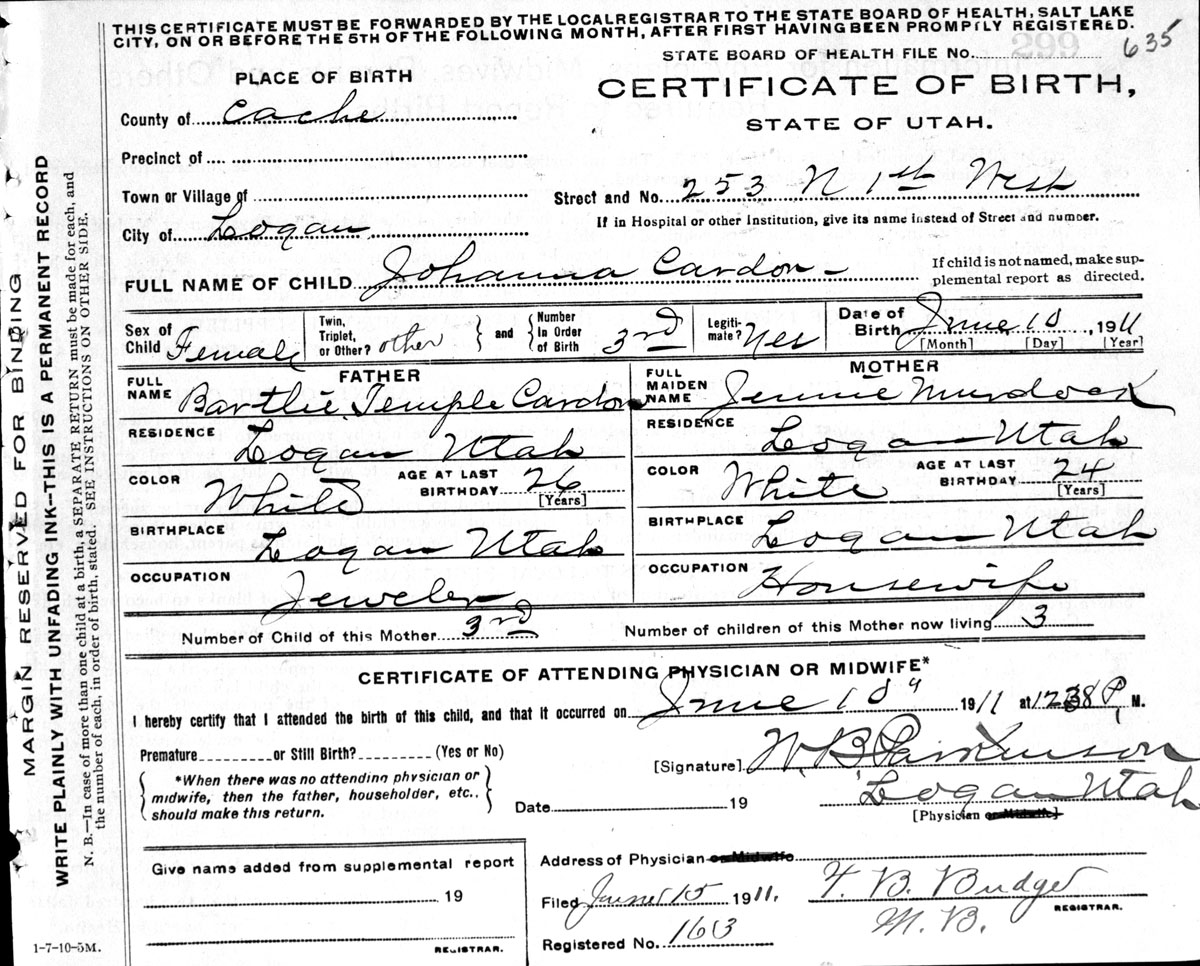 THIS CERTIFICATE MUST BE FORWARDED BY THE LOCAL REGISTRAR TO THE STATE BOARD OF HEALTH, SALT LAKE
CITY, ON OR BEFORE THE 5TH OF THE FOLLOWING MONTH, AFTER FIRST HAVING BEEN PROMPTLY REGISTERED.
STATE BOARD OF HEALTH FILE No. 635
PLACE OF BIRTH
CERTIFICATE OF BIRTH,
STATE OF UTAH.
County of Cache
Precinct of
Town or Village of
Street and No. 253 N 1st West
If in Hospital or other Institution, give its name instead of Street and number.
City of Logan
FULL NAME OF CHILD Johanna Cardon
If child is not named, make sup-
plemental report as directed.
Sex of Child Female
Twin, Triplet, or Other? other
and Number in Order of Birth 3rd
Legiti-mate? Yes
Date of Birth June 10, 1911
[Month] [Day] [Year]
FATHER
FULL NAME Bartlie Temple Cardon
RESIDENCE Logan Utah
COLOR White
AGE AT LAST BIRTHDAY 26
[Years]
BIRTHPLACE Logan Utah
OCCUPATION Jeweler
MOTHER
FULL MAIDEN NAME Jennie Murdock
RESIDENCE Logan Utah
COLOR White
AGE AT LAST BIRTHDAY 24
[Years]
BIRTHPLACE Logan Utah
OCCUPATION Housewife
Number of Child of this Mother 3rd
Number of children of this Mother now living 3
CERTIFICATE OF ATTENDING PHYSICIAN OR MIDWIFE*
I hereby certify that I attended the birth of this child, and that it occurred on June 10" 1911 at P. M.
Premature or Still Birth? (Yes or No)
*When there was no attending physician or
midwife, then the father, householder, etc.,
should make this return.
[Signature] W. B. Parkinson
Logan Utah
Date 19
[Physician or Midwife]
Give name added from supplemental report
19
REGISTRAR.
Address of Physician or Midwife
Filed June 15 1911.
F. B. Budge
M. B.
REGISTRAR.
Registered No. 163
1-7-10-5M.
MARGIN RESERVED FOR BINDING
WRITE PLAINLY WITH UNFADING INK--THIS IS A PERMANENT RECORD
N. B.—In case of more than one child at a birth, a SEPARATE RETURN must be made for each, and
the number of each, in order of birth, stated. SEE INSTRUCTIONS ON OTHER SIDE.